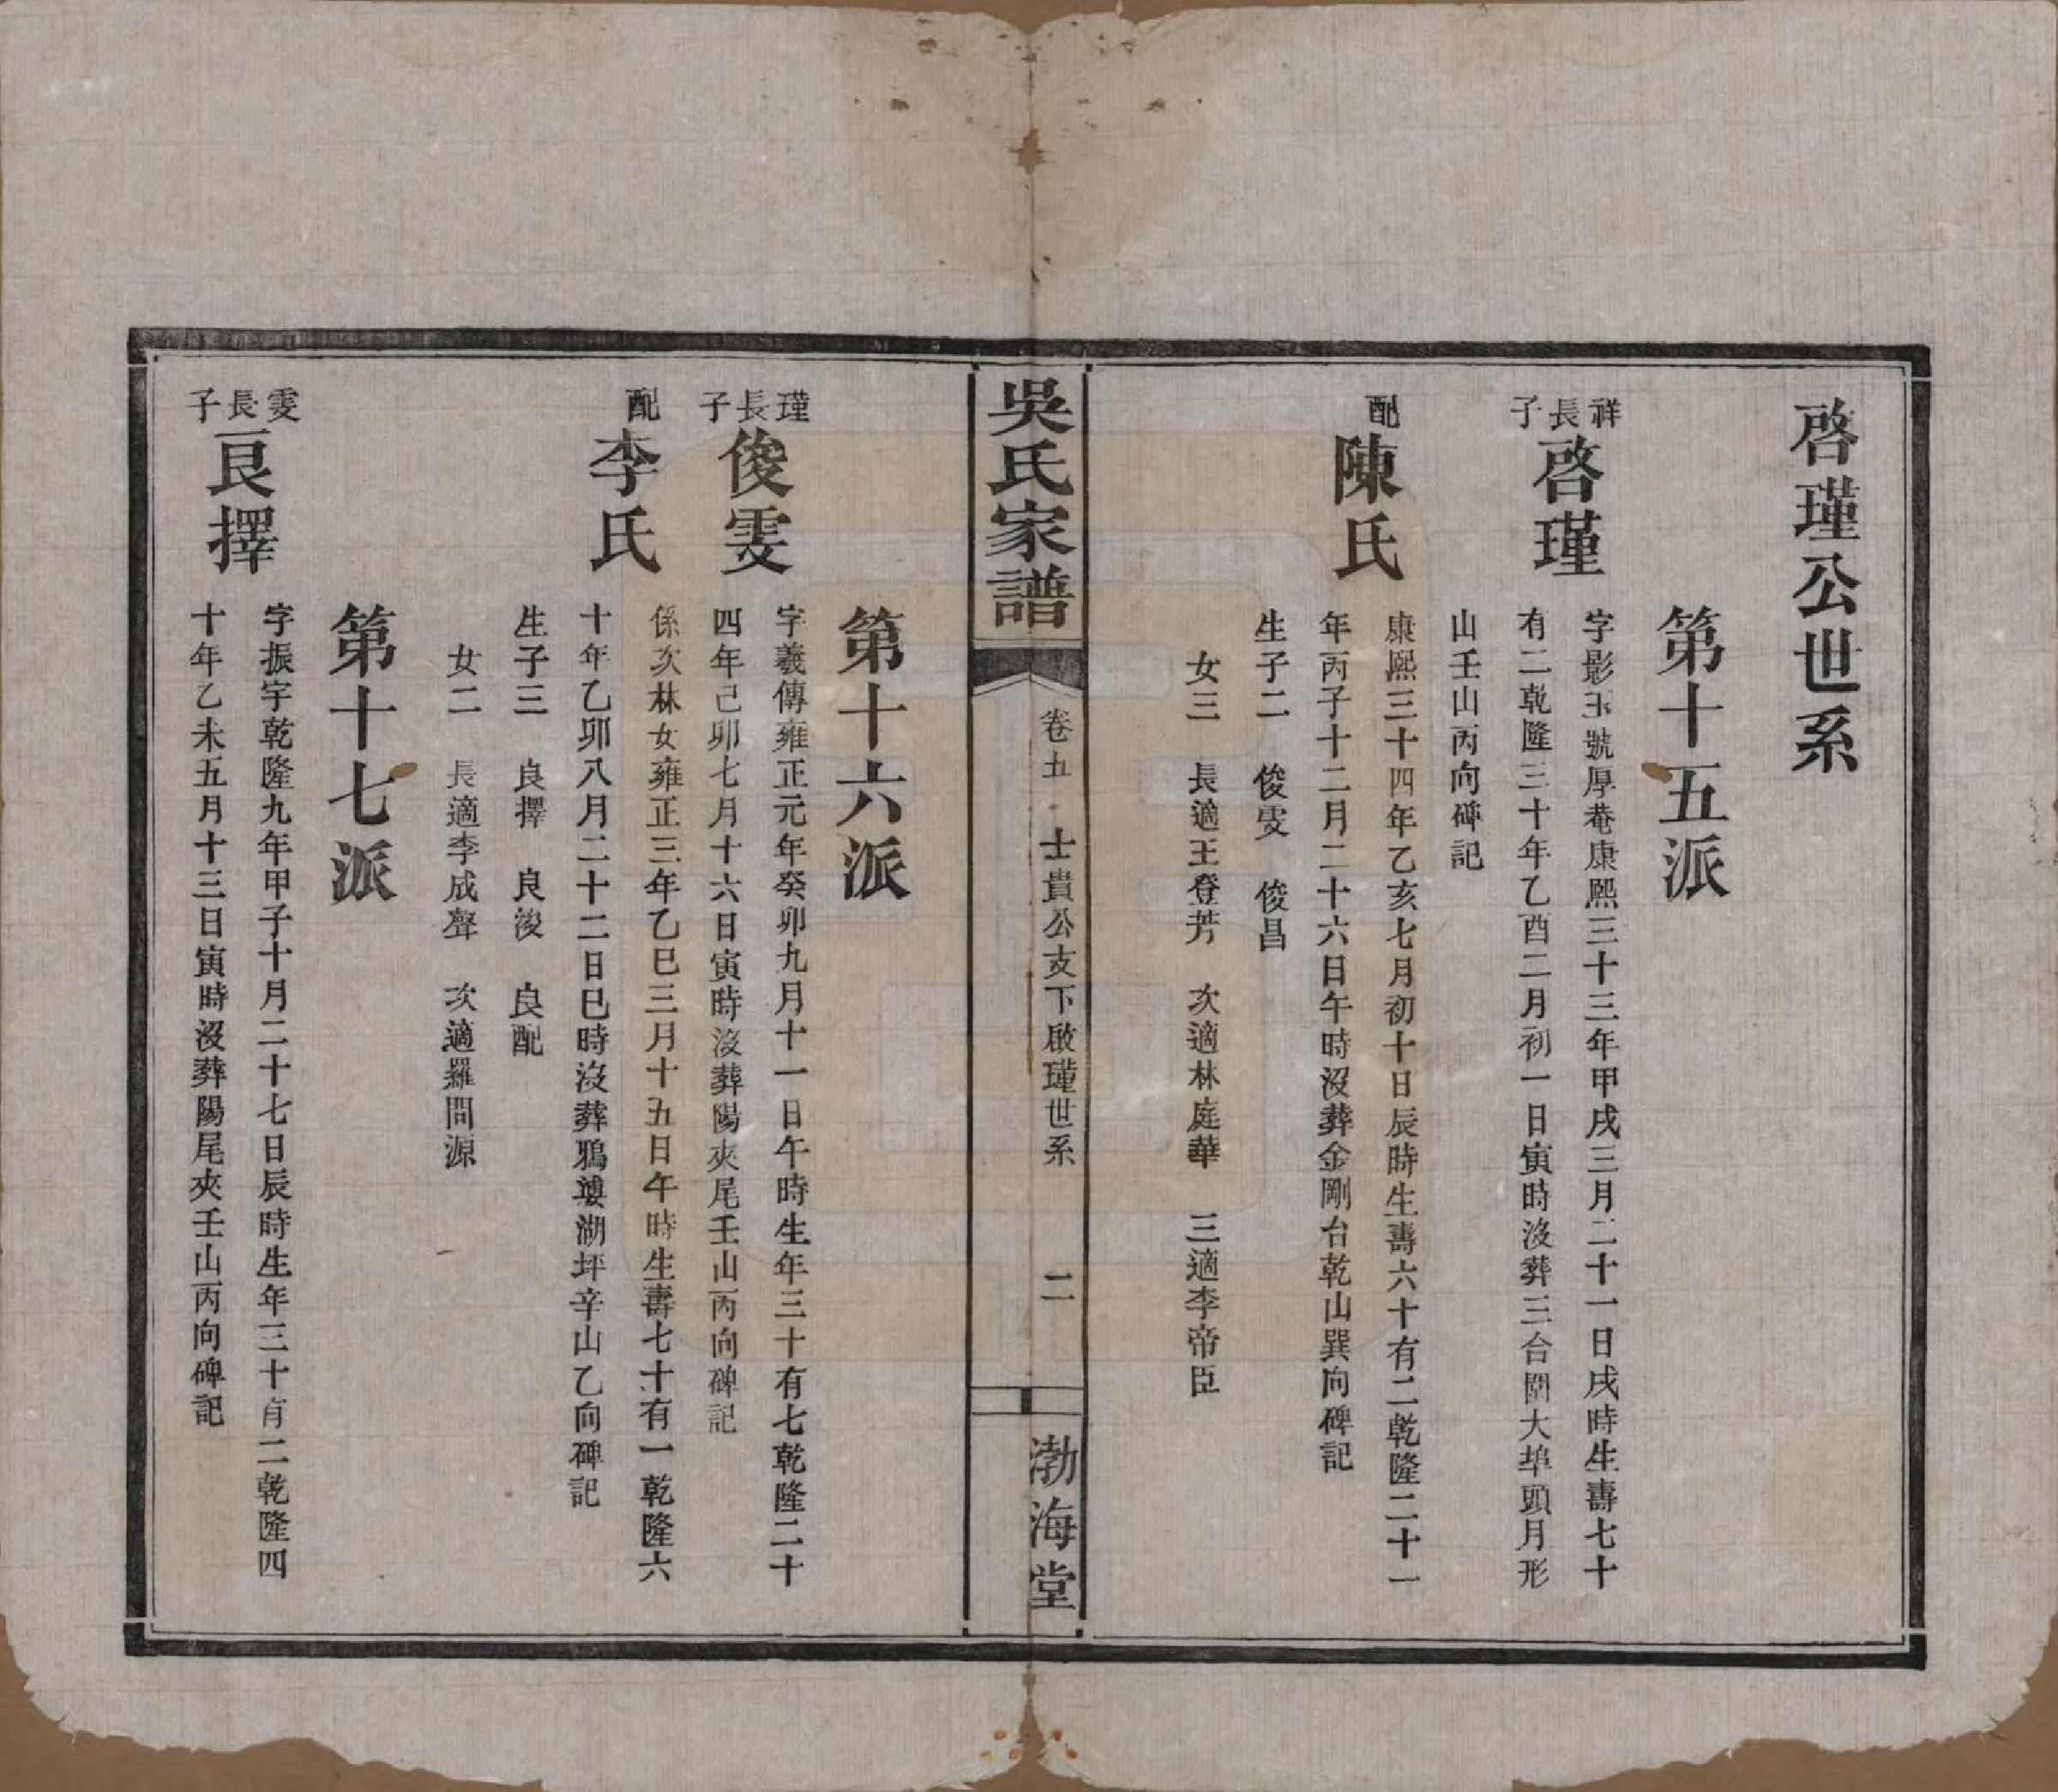 啓瑾公世系
第十五派
祥長子
啓瑾
字影玉號厚菴康熙三十三年甲戌三月二十一日戌時生壽七十
有二乾隆三十年乙酉二月初一日寅時沒葬三台闇大埠頭月形
山壬山丙向碑記
配
陳氏
康熙三十四年乙亥七月初十日辰時生壽六十有二乾隆二十一
年丙子十二月二十六日午時沒葬金剛台乾山巽向碑記
生子二 俊雯 俊昌
女三 長適王登芳 次適林庭華 三適李帝臣
吳氏家譜
卷五 士貴公支下啟瑾世系 二
渤海堂
第十六派
瑾長子
俊雯
字羲傳雍正元年癸卯九月十一日午時生年三十有七乾隆二十
四年己卯七月十六日寅時沒葬陽夾尾壬山丙向碑記
配
李氏
係次林女雍正三年乙巳三月十五日午時生壽七十有一乾隆六
十年乙卯八月二十二日巳時沒葬鴉婆湖坪辛山乙向碑記
生子三 良擇 良浚 良配
女二 長適李成聲 次適羅問源
第十七派
雯長子
良擇
字振宇乾隆九年甲子十月二十七日辰時生年三十有二乾隆四
十年乙未五月十三日寅時沒葬陽尾夾壬山丙向碑記